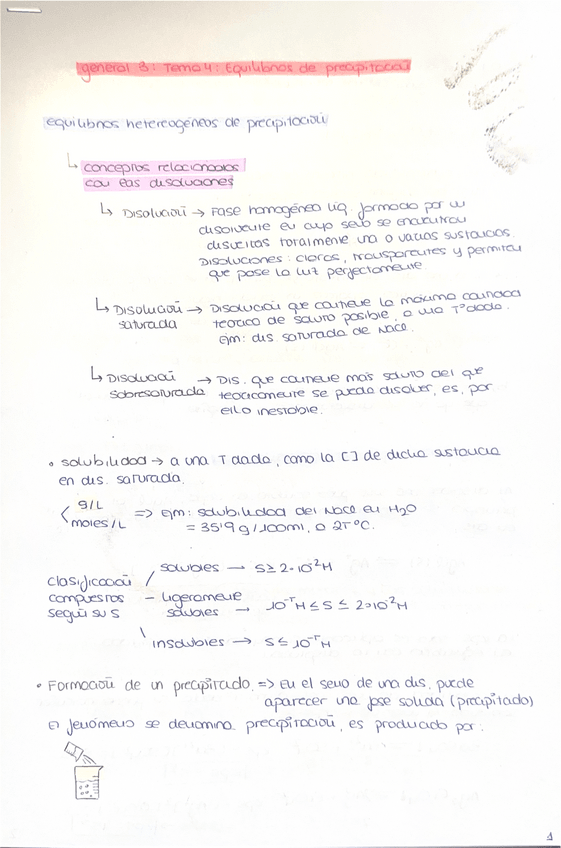 general 3: Tema 4: Equilibrios de precipitación
equilibrios hetereogéneos de precipitación
↳ conceptos relacionados
con las disoluciones
↳ Disolución → Fase homogénea liq. formada por un
disolvente en cuyo seno se encuentran
disueltas totalmente una o varias sustancias.
Disoluciones: claras, transparentes y permiten
que pase la luz perfectamente.
↳ Disolución → Disolución que contiene la máxima cantidad
saturada teórica de soluto posible, a una Tª dada.
Ejm: dis. saturada de NaCl.
↳ Disolución → Dis. que contiene más soluto del que
sobresaturada teóricamente se puede disolver, es, por
ello inestable.
• solubilidad → a una T dada, como la [] de dicha sustancia
en dis. saturada.
g/L
< moles/L => Ejm: solubilidad del NaCl en H2O
= 35'9 g/100ml, a 25ºC.
Clasificación / solubles → S ≥ 2·10⁻²M
compuestos – ligeramente
según su S solubles → 10⁻⁵M ≤ S ≤ 2·10⁻²M
\ insolubles → S ≤ 10⁻⁵M
• Formación de un precipitado. => En el seno de una dis, puede
aparecer una fase solida (precipitado)
El fenómeno se denomina precipitación, es producido por:
1